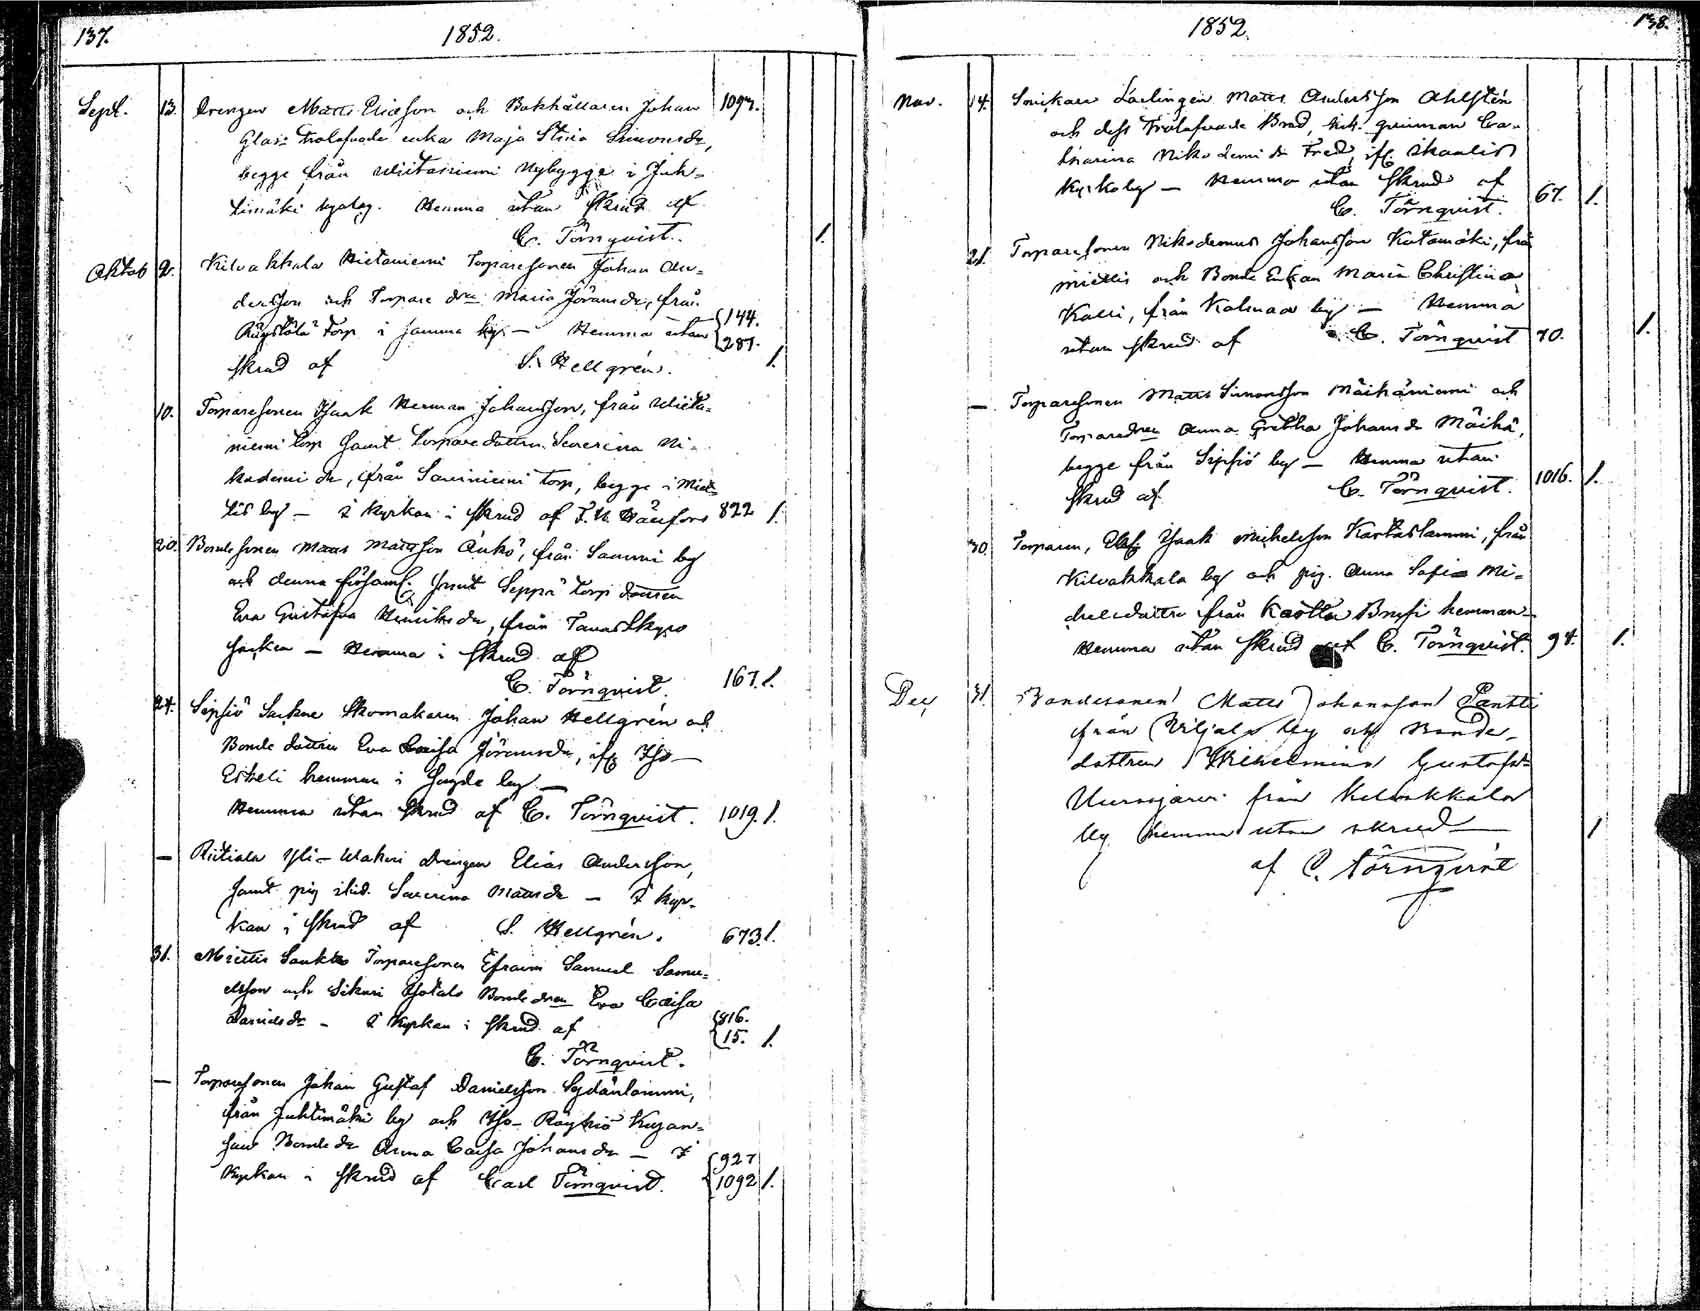 137.
1852.
Sept. 13. Drengen Matts Ericsson och Bokhållaren Johan 1097.
Glas trolofvade enka Maja Stina Simonsdr,
begge från Wiitaniemi Nybygge i Juh-
timäki byalag. Hemma utan Skrud af
C. Törnqvist. 1.
Oktob 2. Kilvakkala Hietaniemi Torparesonen Johan An-
dersson och Torpare dren Maria Jöransdr, från
torp i samma by. – Hemma utan 144. 287.
skrud af S. Hellgrén. 1.
10. Torparesonen Isaak Herman Johansson, från Wiita-
niemi torp samt Torpare dottren Severina Ni-
kodemi dr, från Saviniemi torp, begge i Miet-
tis by – I kyrkan i skrud af 822 1.
20. Bondesonen Matts Mattsson från Sammi by
och denna församl. samt Seppä torp dottren
Eva Gustafva Henriksdr, från Tavastkyro
socken – Hemma i skrud af
C. Törnqvist. 167. 1.
24. Sipsiö Sockne Skomakaren Johan Hellgrén och
Bonde dottren Eva Caisa Jöransdr, ifr. Iso-
Eskeli hemman i by –
Hemma utan skrud af C. Törnqvist. 1019. 1.
— Riitiala Yli- drengen Elias Andersson,
samt pig. Severina Mattsdr – I kyr-
kan i skrud af S. Hellgrén. 673. 1.
31. Miettis Torparesonen Efraim Samuel Samu-
elsson och Sikuri Bonde dren Eva Caisa
Danielsdr – I kyrkan i skrud af 816. 15. 1.
C. Törnqvist.
— Torparesonen Johan Gustaf Danielsson Sydänlammi,
från Juhtimäki by och Iso-Röyhiö Kujan-
Bonde dr Anna Caisa Johansdr – I 927
kyrkan i skrud af Carl Törnqvist. 1092 1.
138.
1852.
Nov. 14. Snickare Lärlingen Matts Andersson Ahlstén
och dess Trolofvade Brud, Ca-
tharina Nikodemi dr Fred, ifr. Skantis
Kyrkoby – Hemma utan skrud af 67. 1.
C. Törnqvist.
21. Torparesonen Nikodemus Johansson Katamäki, från
Miettis och Bonde Enkan Maria Christina
Kalli, från Kalmaa by – Hemma
utan skrud af C. Törnqvist 70. 1.
— Torparesonen Matts Simonsson Mäihäniemi och
Torparedren Anna Gretha Johansdr Mäihä,
begge från Sipsiö by – Hemma utan
skrud af C. Törnqvist. 1016. 1.
30. Torparen, Isaak Michelsson Kartaslammi, från
Kilvakkala by och pig. Anna Sofia Mi-
chelsdotter från Kartta hemman –
Hemma utan skrud af C. Törnqvist. 94. 1.
Dec, 31. Bondesonen Matts Johannson Pentti
från Viljala by och Bonde-
dottren Wilhelmina Gustafsdr
Uurasjärvi från Kilvakkala
by hemma utan skrud – 1
af C. Törnqvist